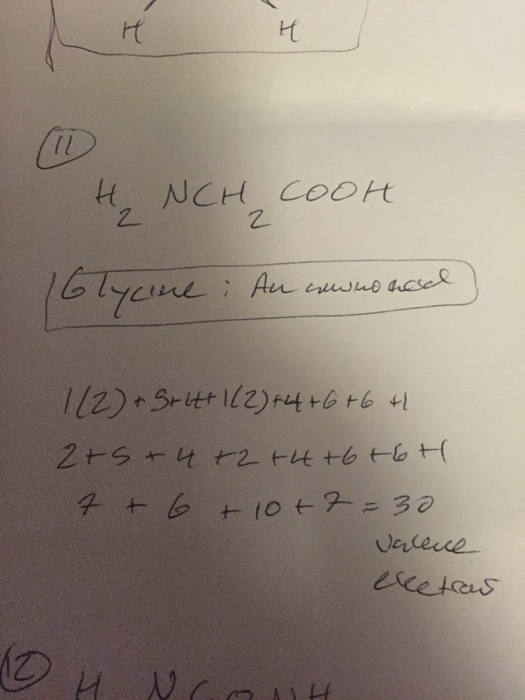 H H
11
H2 NCH2 COOH
Glycine : An amino acid
1(2) + 5+4+1(2)+4+6+6 +1
2+5+4+2+4+6+6+1
7 + 6 + 10 + 7 = 30
valence
electrons
12